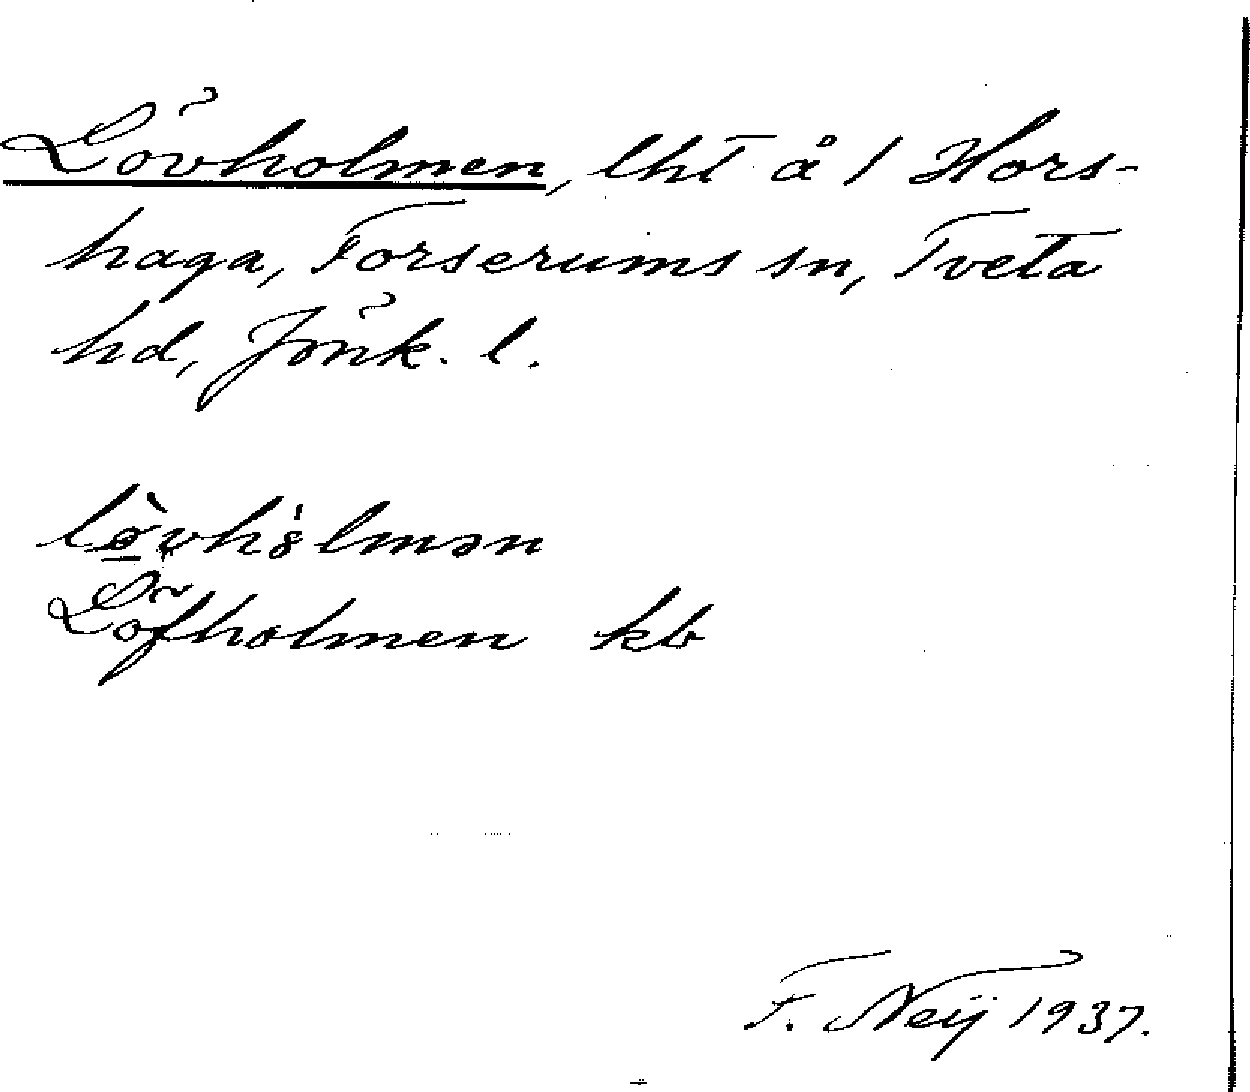 Lövholmen, lht å 1 Hors-
haga, Forserums sn, Tveta
hd, Jönk. l.
Löfholmen kb
F. Neij 1937.